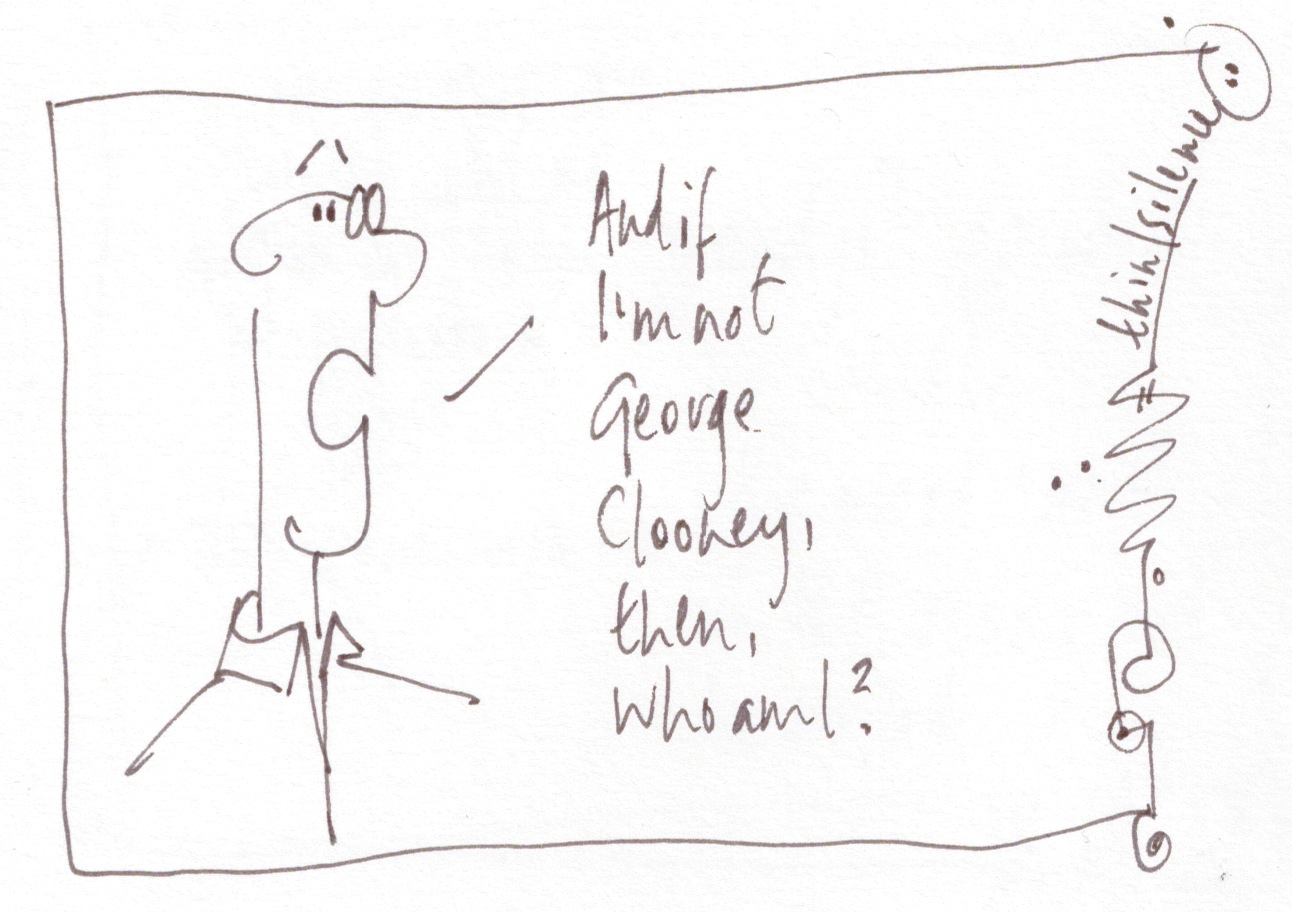 And if
I'm not
George
Clooney,
then,
who am I?
thin/silence